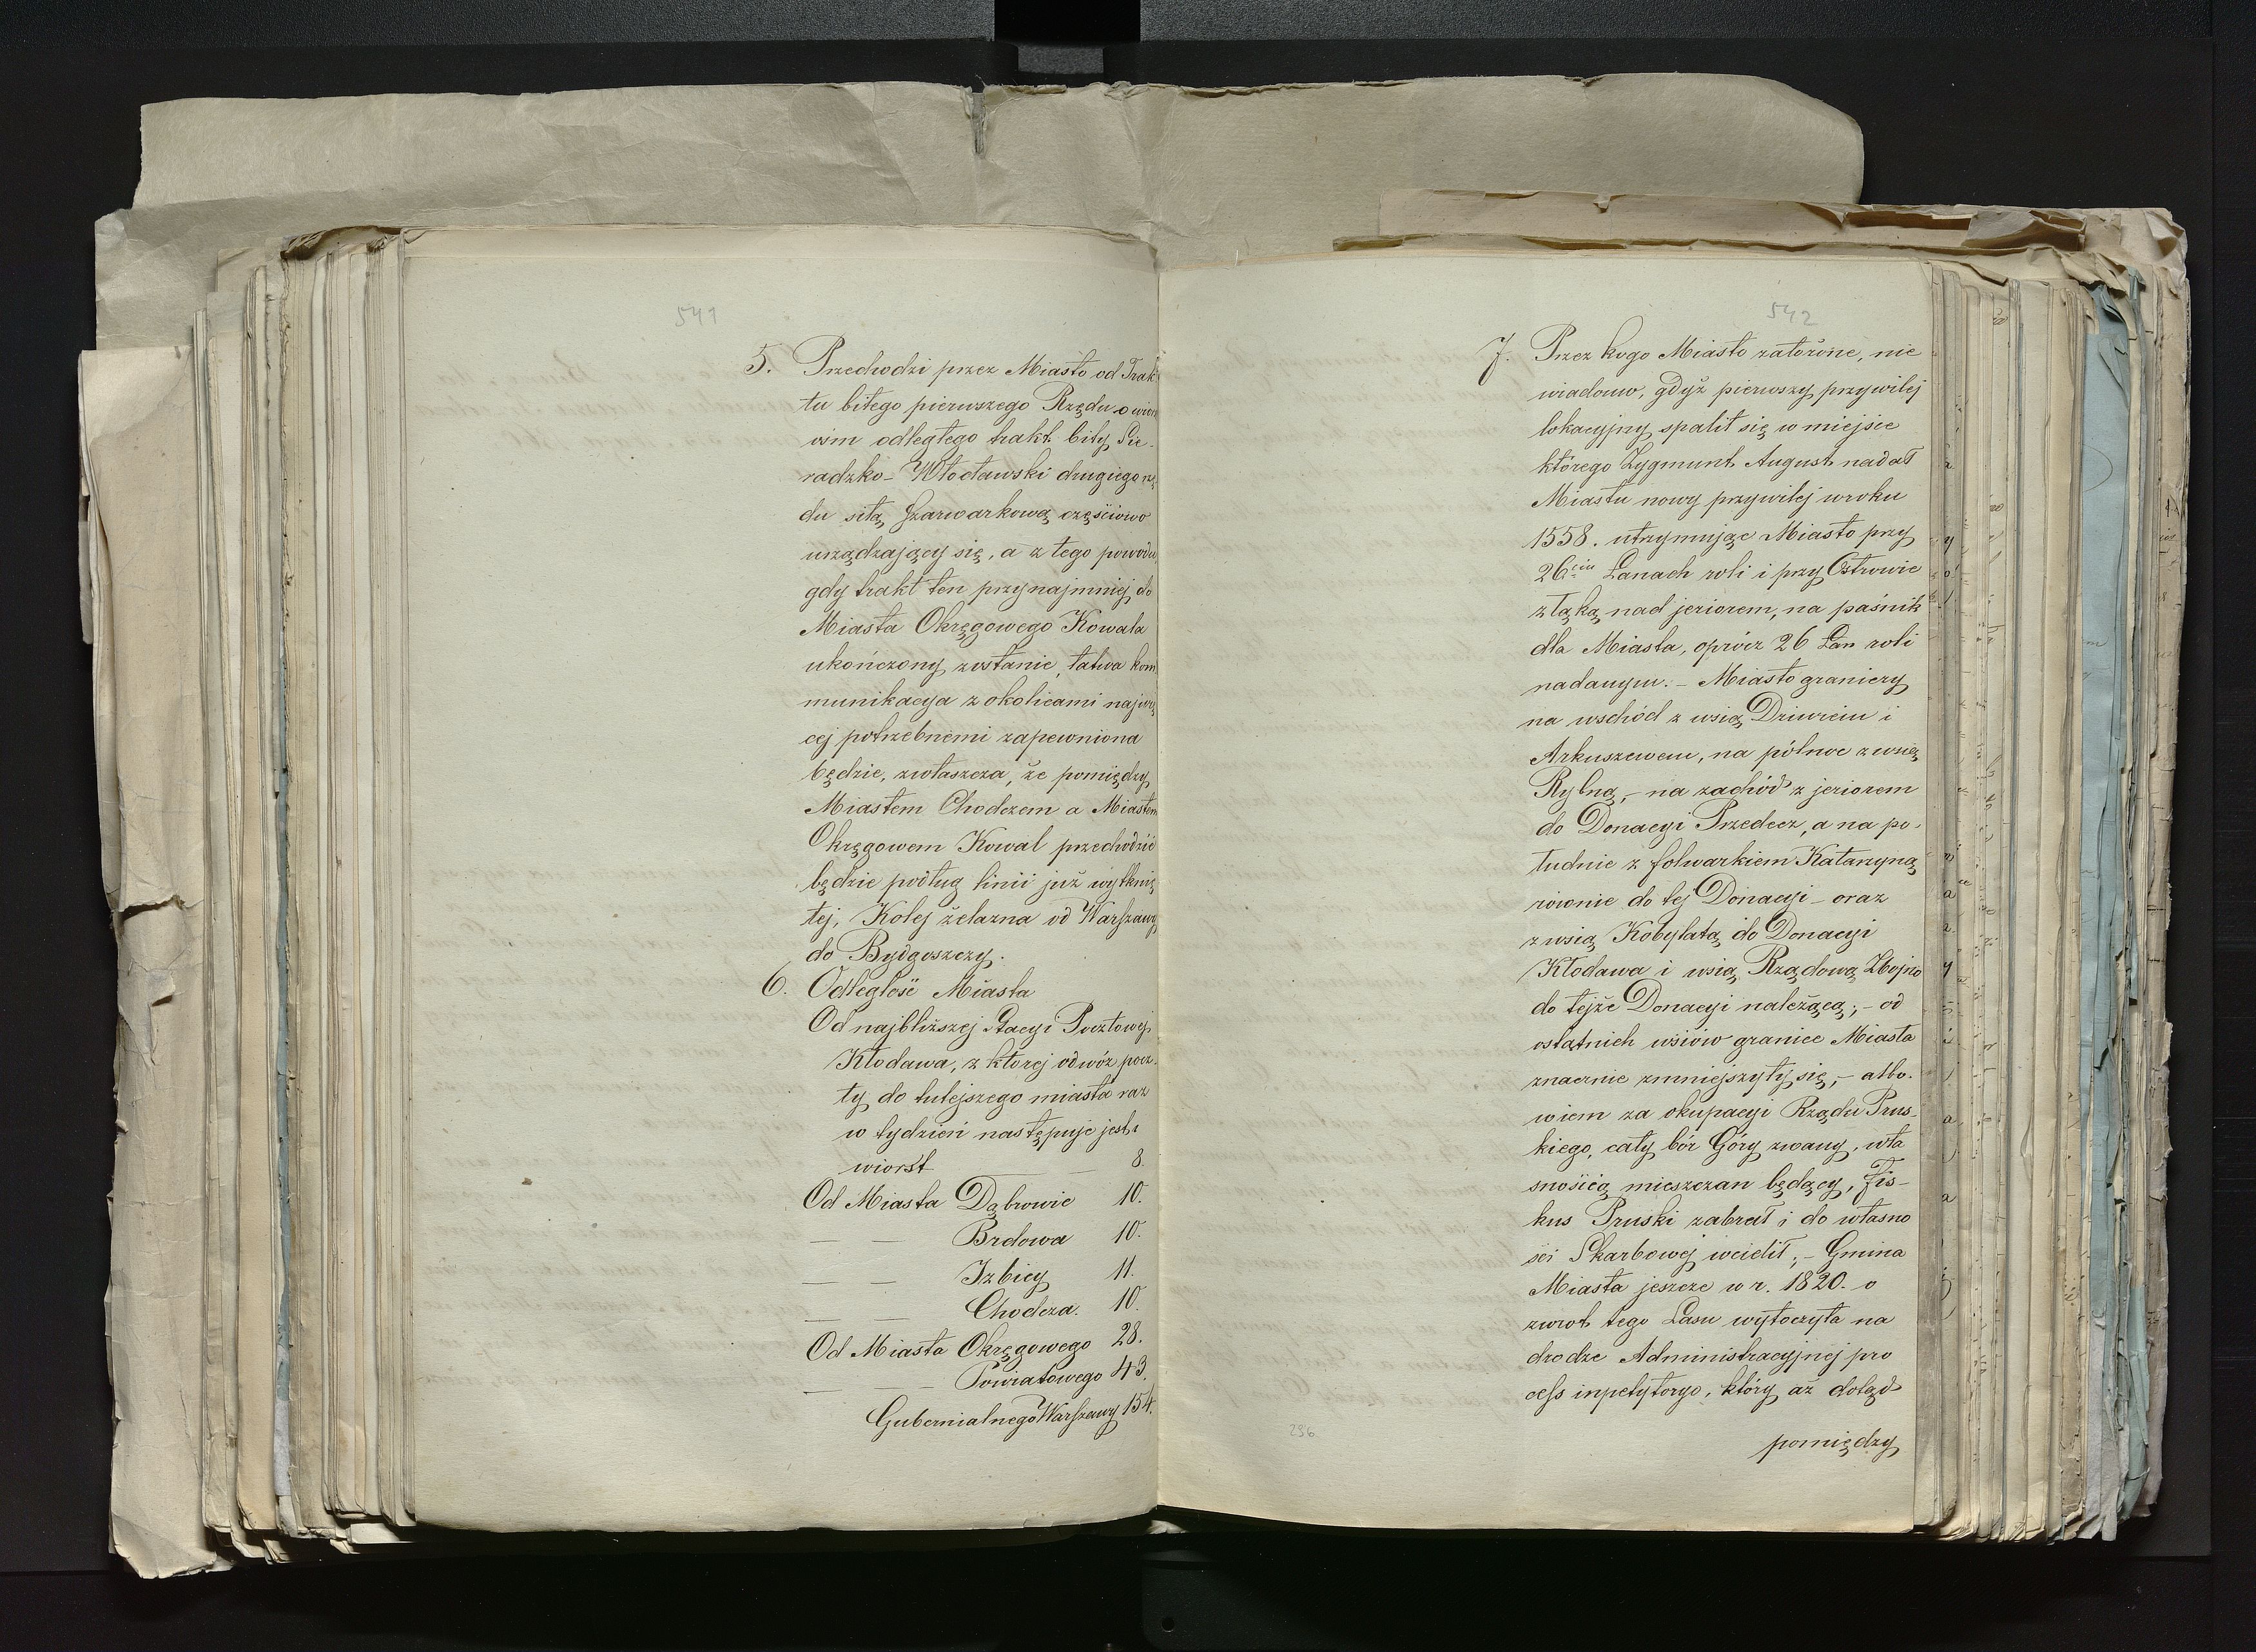 541
5. Przechodzi przez Miasto od Trak
tu bitego pierwszego Rzędu o wiorst
ośm odległego trakt bity Sie-
radzko-Włocławski drugiego rzę
du siłą szarwarkową częściowo
urządzający się, a z tego powodu,
gdy trakt ten przynajmniej do
Miasta Okręgowego Kowala
ukończony zostanie, łatwa kom
munikacya z okolicami najwię
cej potrzebnemi zapewniona
będzie, zwłaszcza, że pomiędzy
Miastem Chodczem a Miastem
Okręgowem Kowal przechodzić
będzie podług linii już wytknię
tej, Kolej żelazna od Warszawy
do Bydgoszczy.
6. Odległość Miasta
Od najbliższej Stacyi Pocztowej
Kłodawa, z której odwóz pocz-
ty do tutejszego miasta raz
w tydzień następuje jest
wiorst — 8.
Od Miasta Dąbrowic 10.
— — Brdowa 10.
— — Izbicy 11.
— — Chodcza. 10.
Od Miasta Okręgowego 28.
— — Powiatowego 43.
Gubernialnego Warszawy 154.
542
7. Przez kogo Miasto założone, nie
wiadomo, gdyż pierwszy przywilej
lokacyjny spalił się w miejsce
którego Zygmunt August nadał
Miastu nowy przywilej w roku
1558. utrzymując Miasto przy
26ciu Łanach roli i przy Ostrowie
z łąką nad jeziorem, na paśnik
dla Miasta, oprócz 26 Łan roli
nadanym. – Miasto graniczy
na wschód z wsią Dziwiem i
Arkuszewem, na północ z wsią
Rybną, – na zachód z jeziorem
do Donacyi Przedecz, a na po-
łudnie z folwarkiem Katarzyną
rownie do tej Donacyi – oraz
z wsią Kobylatą do Donacyi
Kłodawa i wsią Rządową Zbojno
do tejże Donacyi należącą; – od
ostatnich wsiów granice Miasta
znacznie zmniejszyły się, – albo-
wiem za okupacyi Rządu Prus-
kiego, cały bór Góry zwany, wła
snością mieszczan będący, Fis-
kus Pruski zabrał i do własno
ści Skarbowej wcielił; – Gmina
Miasta jeszcze w r. 1820. o
zwrot tego Lasu wytoczyła na
drodze Administracyjnej pro
cess inpetytoryo, który aż dotąd
pomiędzy
296